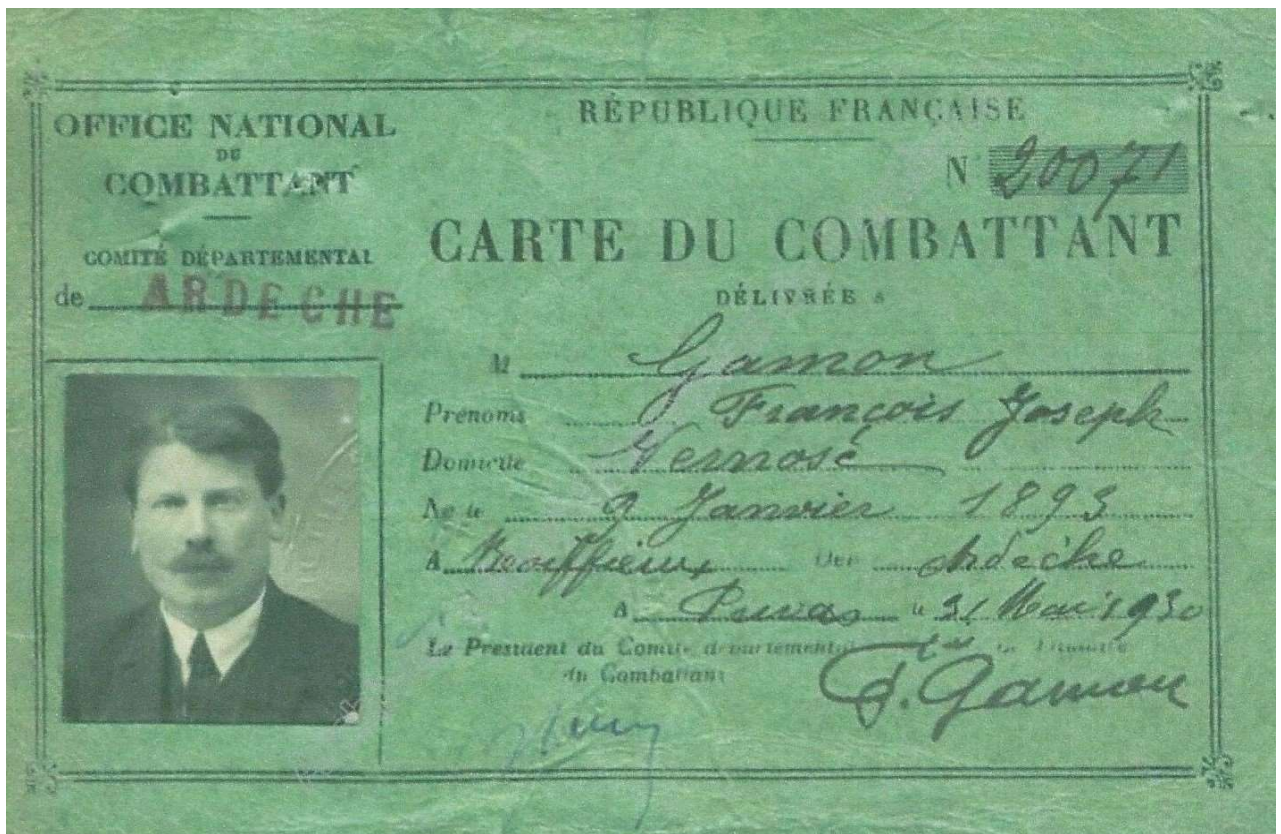 OFFICE NATIONAL
DU
COMBATTANT
COMITÉ DÉPARTEMENTAL
de ARDECHE
RÉPUBLIQUE FRANÇAISE
N 20071
CARTE DU COMBATTANT
DÉLIVRÉE à
M Gamon
Prénoms François Joseph
Domicile Vernosc
Né le 9 Janvier 1893
A Boiffieux Dép Ardèche
A Privas le 31 Mai 1930
Le Président du Comité départemental
du Combattant
Le Titulaire
F. Gamon